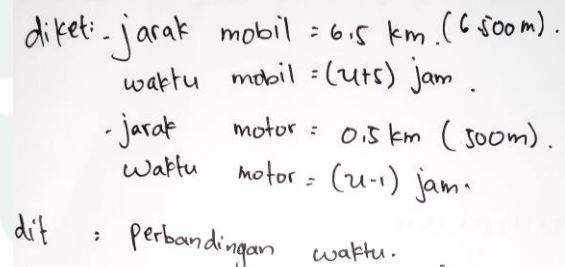 diket: - jarak mobil = 6.5 km. (6.500m).
waktu mobil = (u+5) jam.
- jarak motor : 0.5 km (500m).
waktu motor = (u-1) jam.
dit : perbandingan waktu.